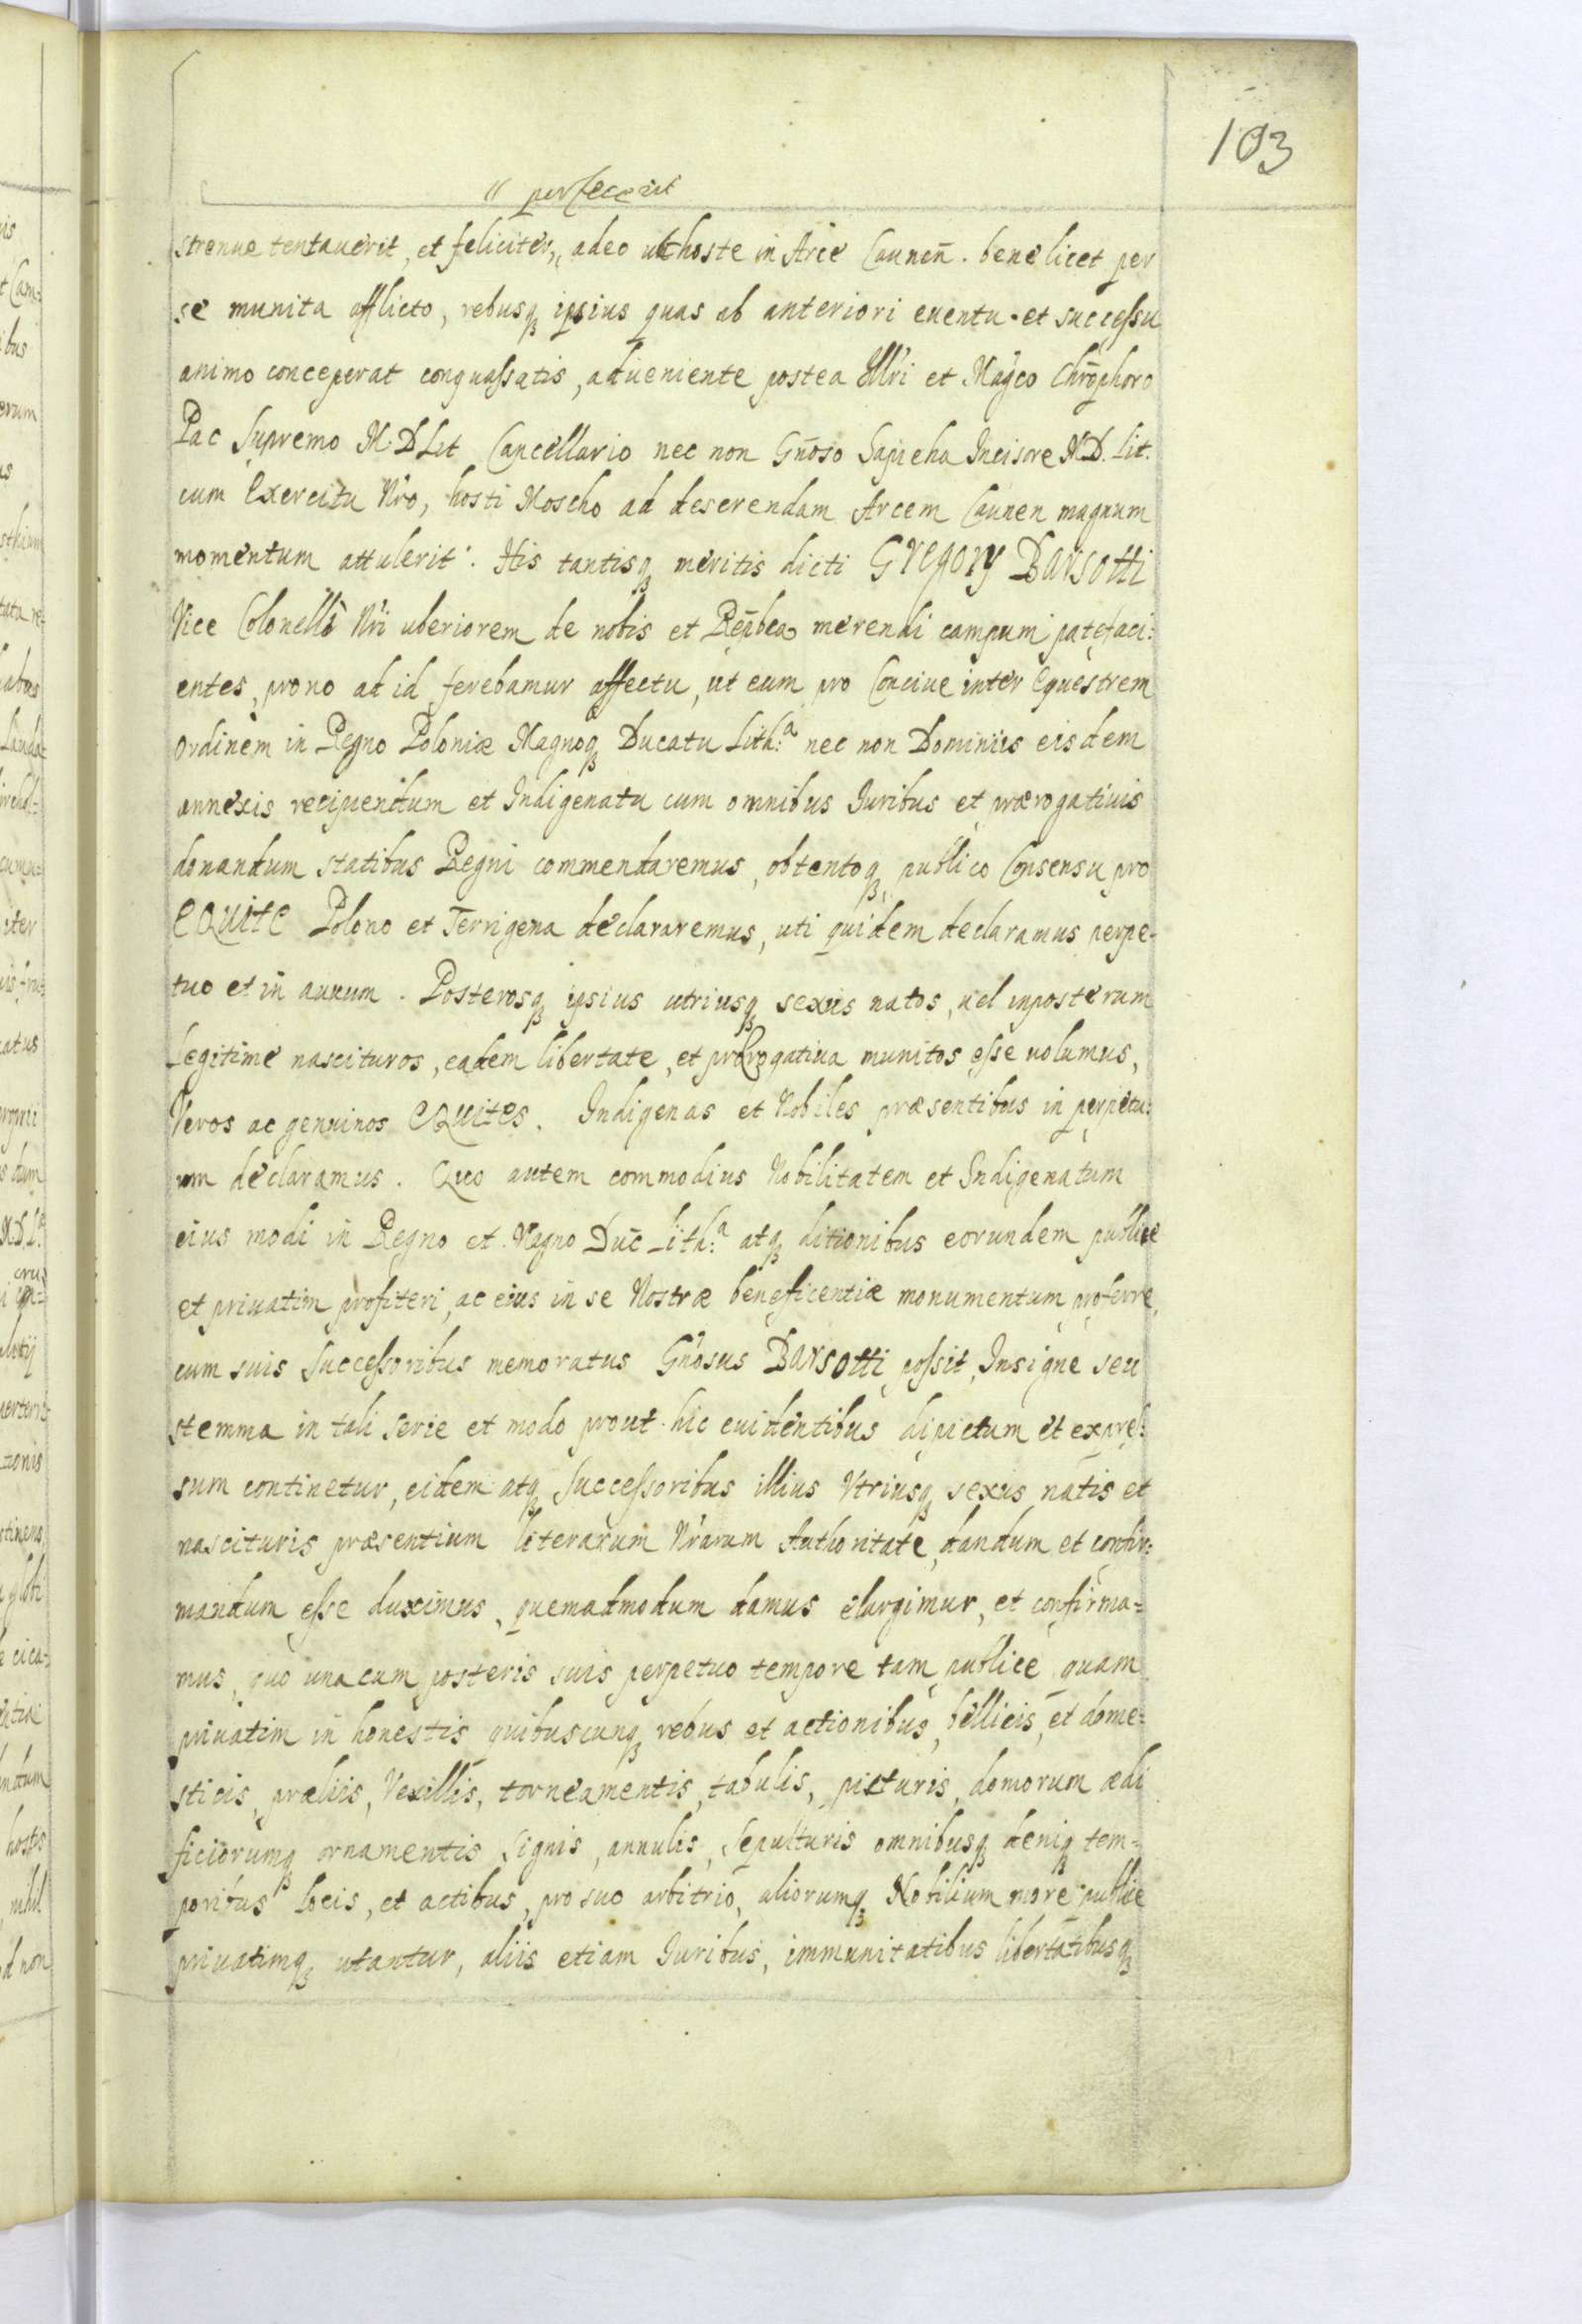 103
" perfecerit
strenue tentauerit, et feliciter, " adeo ut hoste in Arce Caunen̄. bene licet per
se munita afflicto, rebusq₃ ipsius quas ab anteriori euentu et successu
animo conceperat conquassatis, adueniente postea Illri et Magco Chrophoro
Pac Supremo M. D Lit Cancellario nec non Gnoso Sapieha Incisore M D. Lit.
cum Exercitu Nro, hosti Moscho ad deserendam Arcem Caunen magnum
momentum attulerit. His tantisq₃ meritis dicti Gregory Barsotti
Vice Colonelli Nri uberiorem de nobis et Repbca merendi campum patefaci:
entes, prono ad id ferebamur affectu, ut eum pro Conciue inter Equestrem
Ordinem in Regno Poloniæ Magnoq₃ Ducatu Lith:ᵃ nec non Dominiis eisdem
annexis recipiendum et Indigenatu cum omnibus Iuribus et prærogatiuis
donandum statibus Regni commendaremus, obtentoq₃ publico Consensu pro
EQuite Polono et Terrigena declararemus, uti quidem declaramus perpe-
tuo et in æuum. Posterosq₃ ipsius utriusq₃ sexus natos, uel inposterum
Legitime nascituros, eadem libertate, et prærogatiua munitos esse uolumus,
Veros ac genuinos EQuites. Indigenas et Nobiles præsentibus in perpetu:
um declaramus. Quo autem commodius Nobilitatem et Indigenatum
eius modi in Regno et Magno Duc̄ Lith:ᵃ atq₃ ditionibus eorundem publice
et priuatim profiteri, ac eius in se Nostræ beneficentiæ monumentum proferre,
cum suis Successoribus memoratus Gnosus Barsotti possit, Insigne seu
stemma in tali serie et modo prout hic euidentibus dipictum et expres:
sum continetur, eidem atq₃ Successoribus illius Vtriusq₃ sexus natis et
nascituris præsentium literarum Nrarum Authoritate, dandum et confir:
mandum esse duximus, quemadmodum damus elargimur, et confirma=
mus, quo una cum posteris suis perpetuo tempore tam publice quam
priuatim in honestis quibuscunq₃ rebus et actionibus, bellicis, et dome:
sticis, præliis, Vexillis, torneamentis, tabulis, picturis, domorum ædi
ficiorumq₃ ornamentis signis, annulis, sepulturis omnibusq₃ deniq₃ tem=
poribus Locis, et actibus, pro suo arbitrio, aliorumq₃ Nobilium more publice
priuatimq₃ utantur, aliis etiam Iuribus, immunitatibus libertatibusq₃